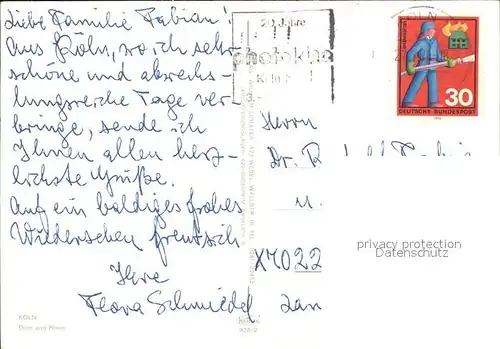 Liebe Familie Fabian!
Aus Köln, wo ich sehr
schöne und abwechs-
lungsreiche Tage ver-
bringe, sende ich
Ihnen allen herz-
lichste Grüße.
Auf ein baldiges frohes
Wiedersehen freut sich
Ihre
Flora Schmiedel
KÖLN
Dom und Rhein
20 Jahre
photokina
Köln
30
DEUTSCHE BUNDESPOST
Herrn
Dr. R
u.
X7022
privacy protection
©Ansichtskartenversand.com